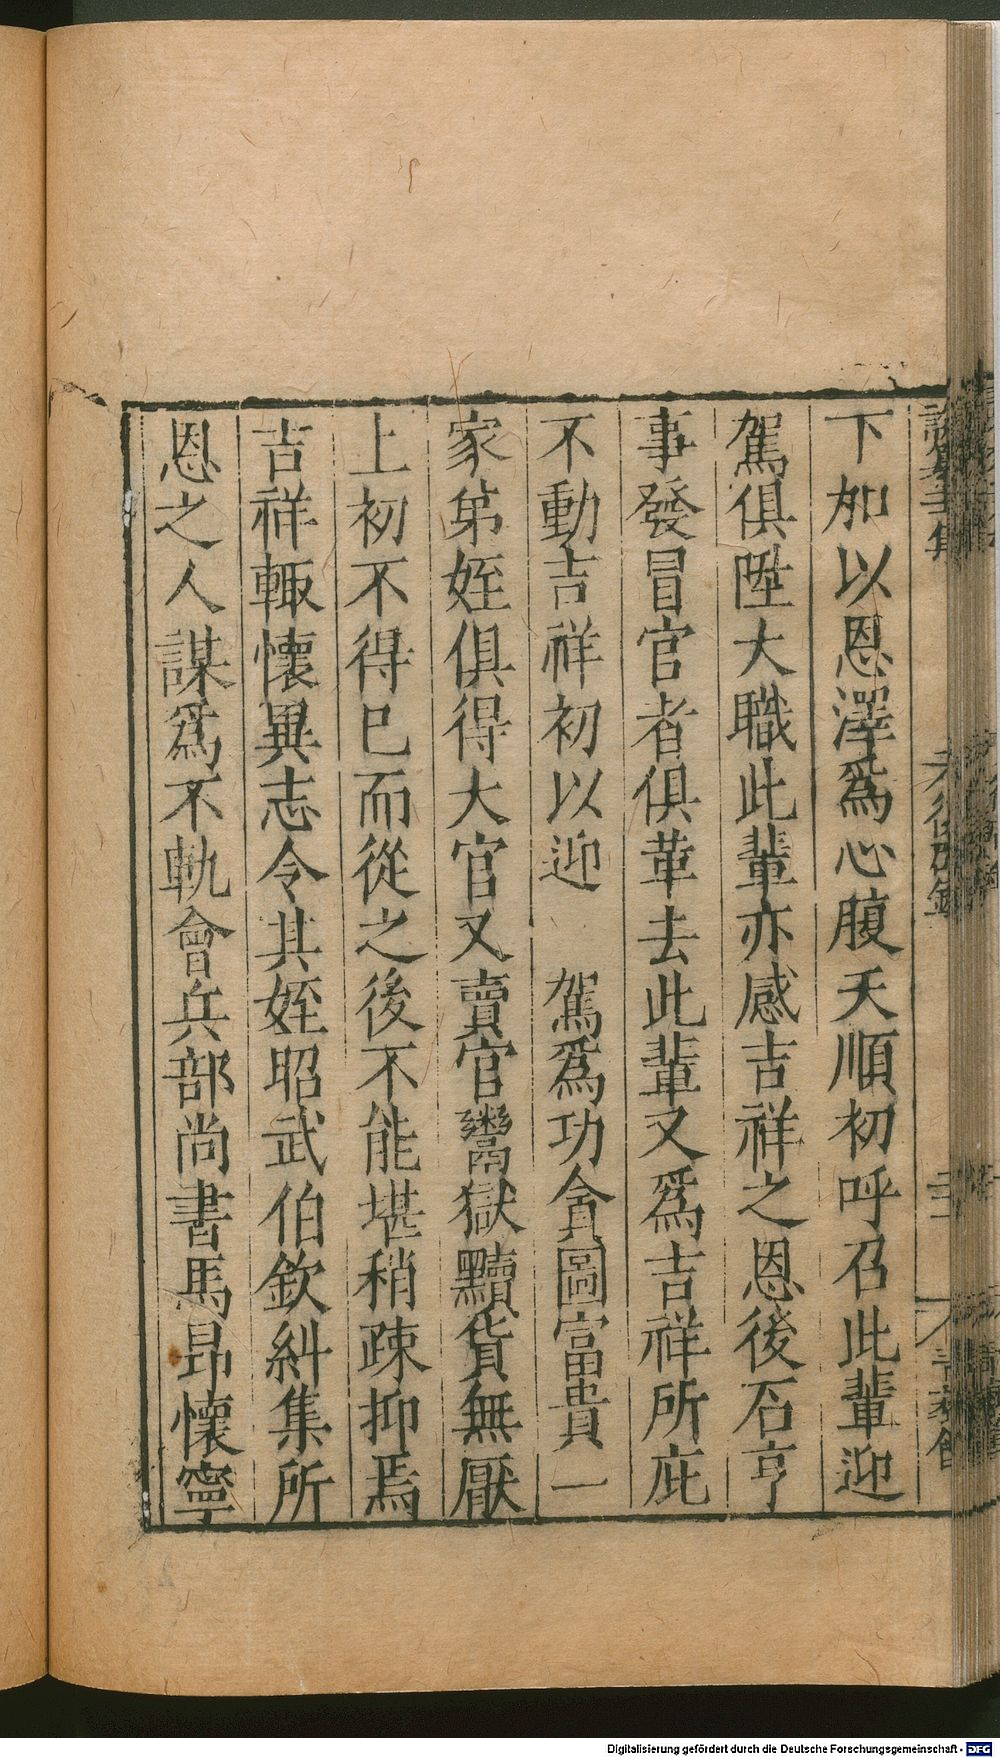 下加以恩澤爲心腹天順初呼召此輩迎
駕俱陞大職此輩亦感吉祥之恩後石亨
事發冒官者俱革去此輩又爲吉祥所庇
不動吉祥初以迎　駕爲功貪圖富貴一
家弟姪俱得大官又賣官鬻獄黷貨無厭
上初不得巳而從之後不能堪稍疎抑焉
吉祥輙懷異志令其姪昭武伯欽糾集所
恩之人謀爲不軌會兵部尚書馬昂懷寧
Digitalisierung gefördert durch die Deutsche Forschungsgemeinschaft - DFG